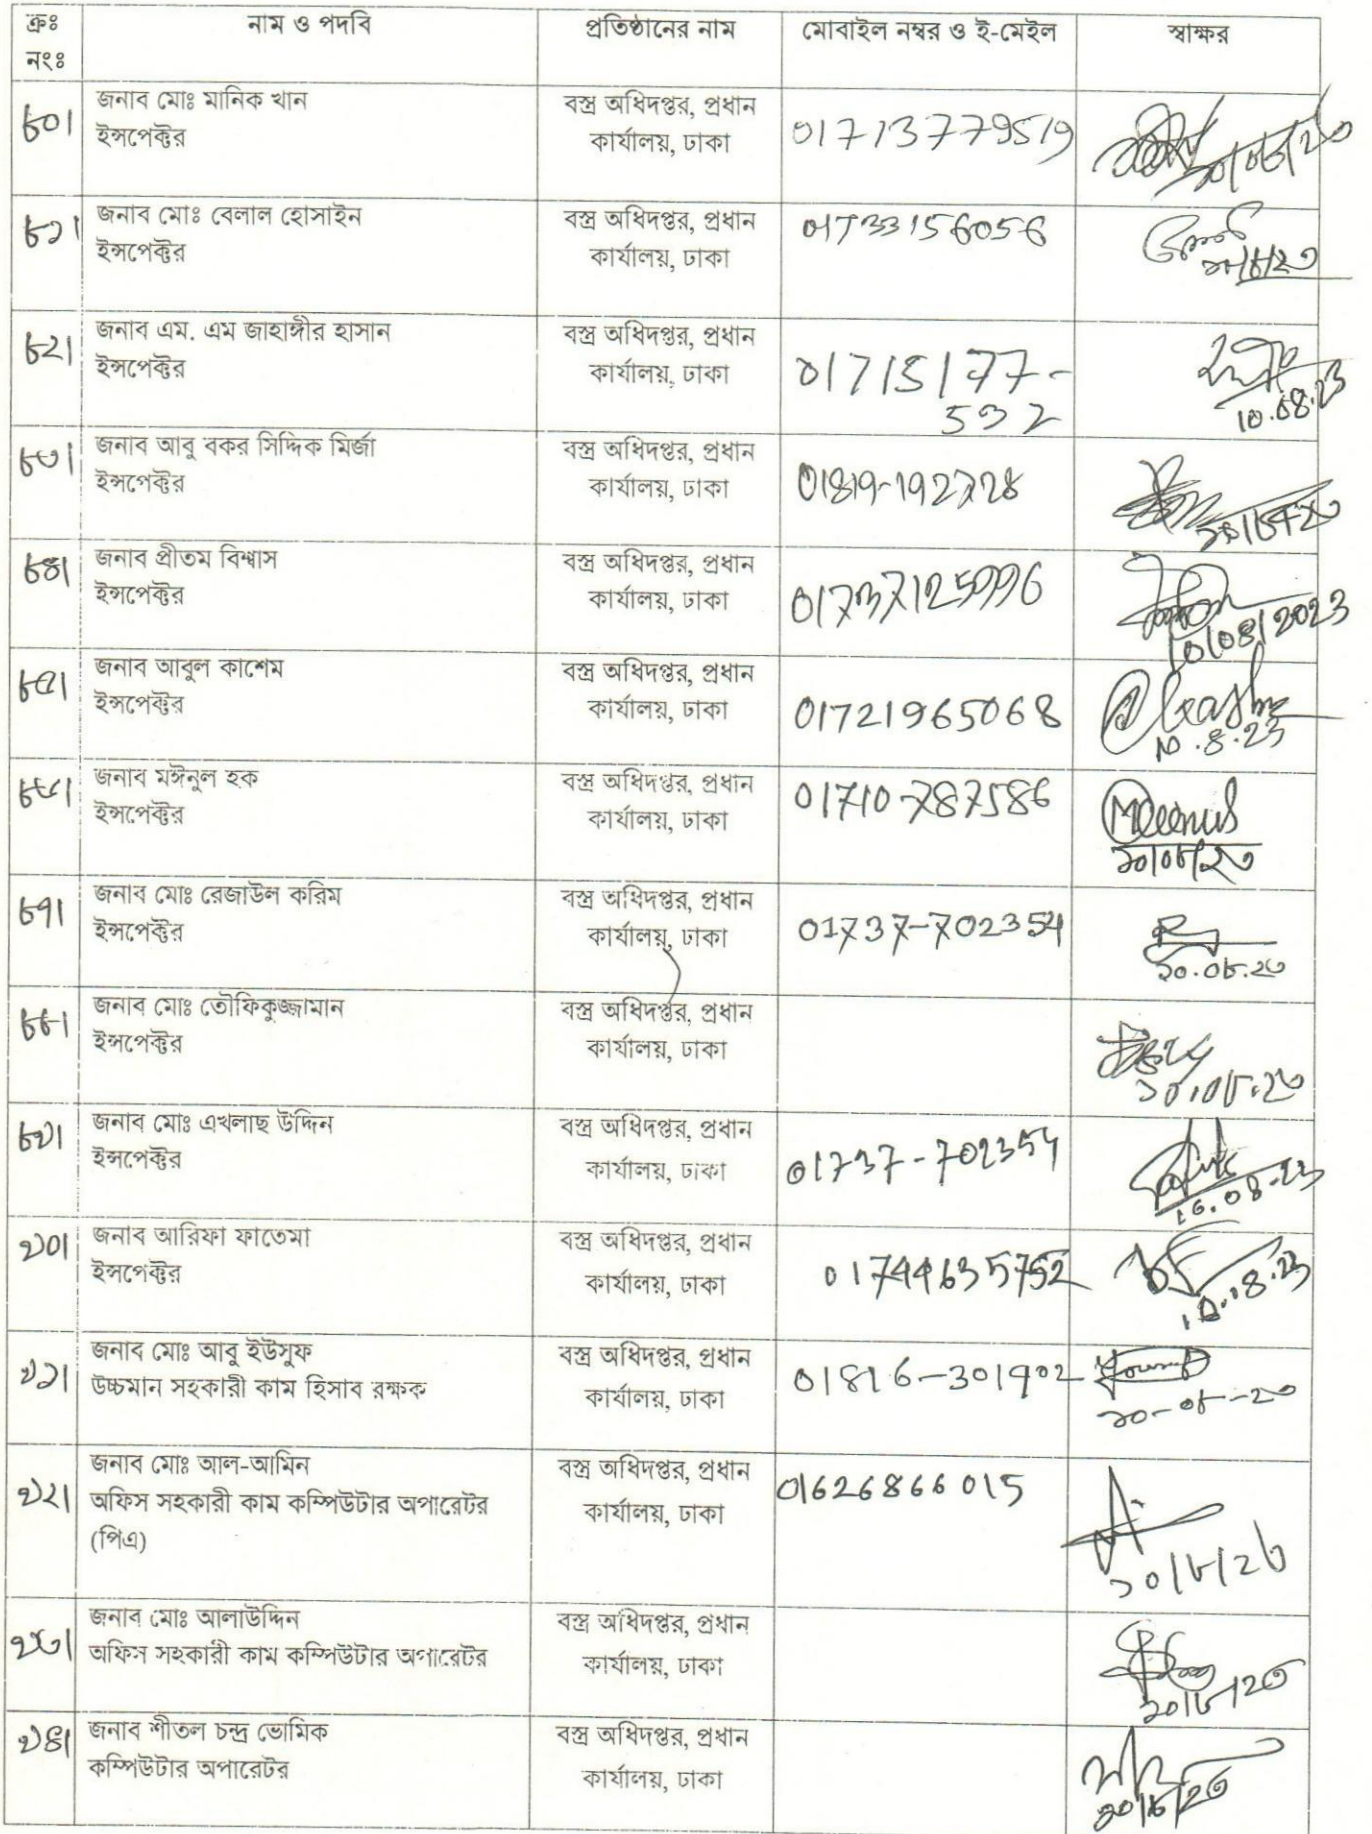 ক্রঃ নংঃ | নাম ও পদবি | প্রতিষ্ঠানের নাম | মোবাইল নম্বর ও ই-মেইল | স্বাক্ষর
৮০। জনাব মোঃ মানিক খান
ইন্সপেক্টর
বস্ত্র অধিদপ্তর, প্রধান
কার্যালয়, ঢাকা
01713779519
৮১। জনাব মোঃ বেলাল হোসাইন
ইন্সপেক্টর
বস্ত্র অধিদপ্তর, প্রধান
কার্যালয়, ঢাকা
01733156056
৮২। জনাব এম. এম জাহাঙ্গীর হাসান
ইন্সপেক্টর
বস্ত্র অধিদপ্তর, প্রধান
কার্যালয়, ঢাকা
01715177-
532
10.08.23
৮৩। জনাব আবু বকর সিদ্দিক মির্জা
ইন্সপেক্টর
বস্ত্র অধিদপ্তর, প্রধান
কার্যালয়, ঢাকা
01819-192728
৮৪। জনাব প্রীতম বিশ্বাস
ইন্সপেক্টর
বস্ত্র অধিদপ্তর, প্রধান
কার্যালয়, ঢাকা
01737125996
10/08/2023
৮৫। জনাব আবুল কাশেম
ইন্সপেক্টর
বস্ত্র অধিদপ্তর, প্রধান
কার্যালয়, ঢাকা
01721965068
10.8.23
৮৬। জনাব মঈনুল হক
ইন্সপেক্টর
বস্ত্র অধিদপ্তর, প্রধান
কার্যালয়, ঢাকা
01710-787586
১০/০৮/২৩
৮৭। জনাব মোঃ রেজাউল করিম
ইন্সপেক্টর
বস্ত্র অধিদপ্তর, প্রধান
কার্যালয়, ঢাকা
01737-702354
১০.০৮.২৩
৮৮। জনাব মোঃ তৌফিকুজ্জামান
ইন্সপেক্টর
বস্ত্র অধিদপ্তর, প্রধান
কার্যালয়, ঢাকা
১০.০৮.২৩
৮৯। জনাব মোঃ এখলাছ উদ্দিন
ইন্সপেক্টর
বস্ত্র অধিদপ্তর, প্রধান
কার্যালয়, ঢাকা
01737-702354
10.08.23
৯০। জনাব আরিফা ফাতেমা
ইন্সপেক্টর
বস্ত্র অধিদপ্তর, প্রধান
কার্যালয়, ঢাকা
01744635752
10.08.23
৯১। জনাব মোঃ আবু ইউসুফ
উচ্চমান সহকারী কাম হিসাব রক্ষক
বস্ত্র অধিদপ্তর, প্রধান
কার্যালয়, ঢাকা
01816-301902
১০-০৮-২৩
৯২। জনাব মোঃ আল-আমিন
অফিস সহকারী কাম কম্পিউটার অপারেটর
(পিএ)
বস্ত্র অধিদপ্তর, প্রধান
কার্যালয়, ঢাকা
01626866015
১০/৮/২৩
৯৩। জনাব মোঃ আলাউদ্দিন
অফিস সহকারী কাম কম্পিউটার অপারেটর
বস্ত্র অধিদপ্তর, প্রধান
কার্যালয়, ঢাকা
১০/৮/২৩
৯৪। জনাব শীতল চন্দ্র ভোমিক
কম্পিউটার অপারেটর
বস্ত্র অধিদপ্তর, প্রধান
কার্যালয়, ঢাকা
১০/৮/২৩